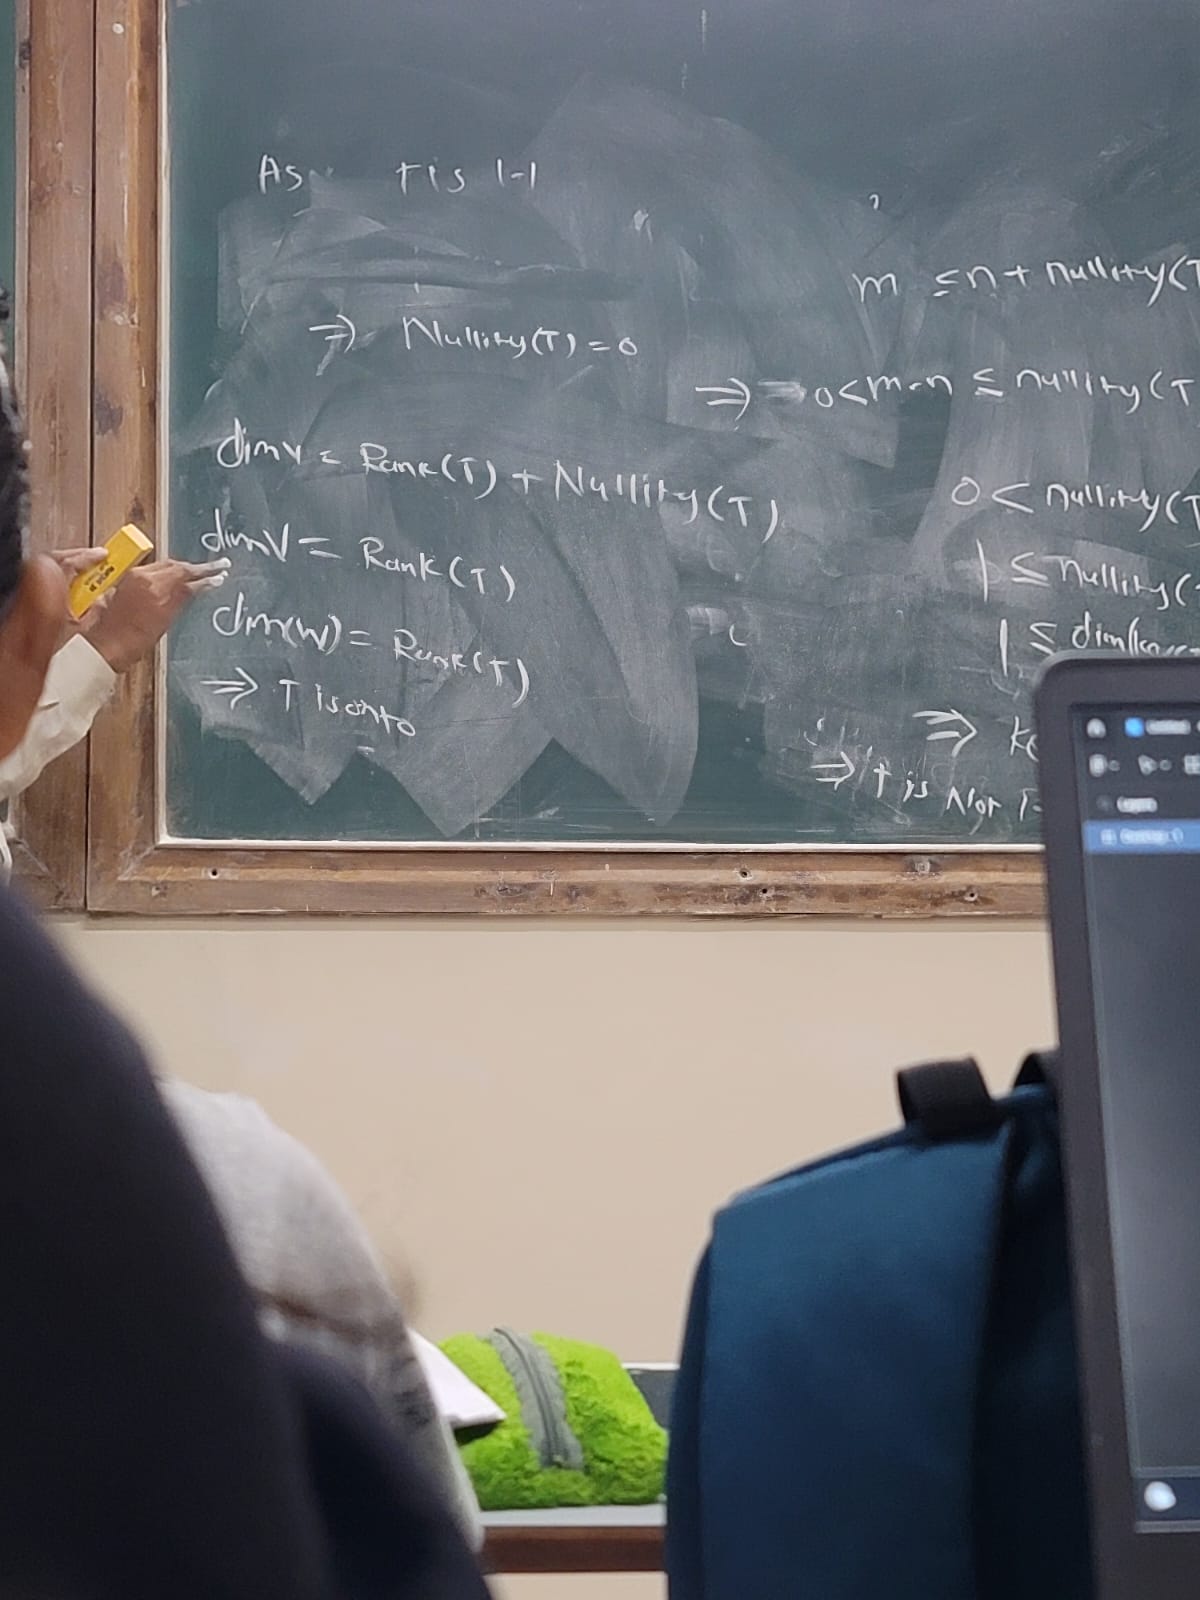 As T is 1-1
⇒ Nullity(T) = 0
dim V = Rank(T) + Nullity(T)
dim V = Rank(T)
dim(W) = Rank(T)
⇒ T is onto
m ≤ n + nullity(T
⇒ 0 < m-n ≤ nullity(T
0 < nullity(T
1 ≤ nullity(
1 ≤ dim(
⇒ Ke
⇒ T is Not 1-